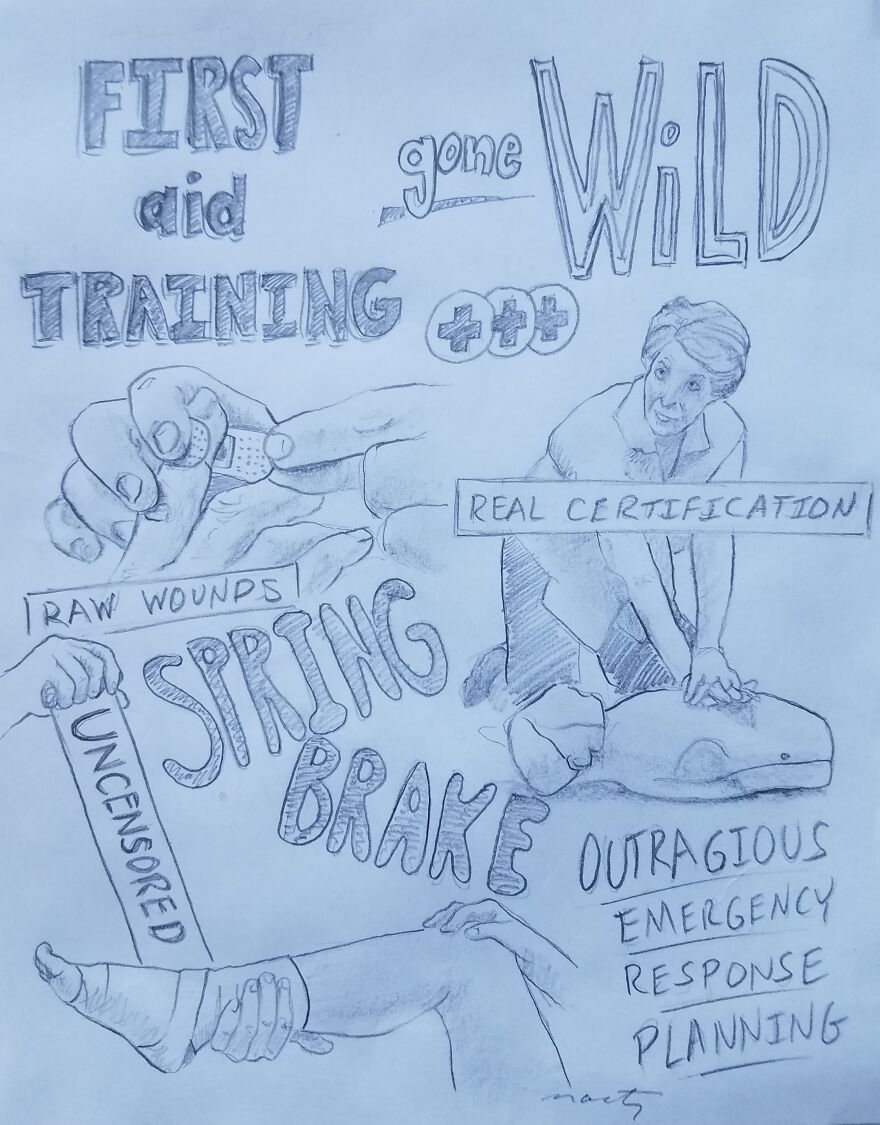 FIRST
aid
TRAINING
gone WiLD
REAL CERTIFICATION
RAW WOUNDS
SPRING
BRAKE
UNCENSORED
OUTRAGIOUS
EMERGENCY
RESPONSE
PLANNING